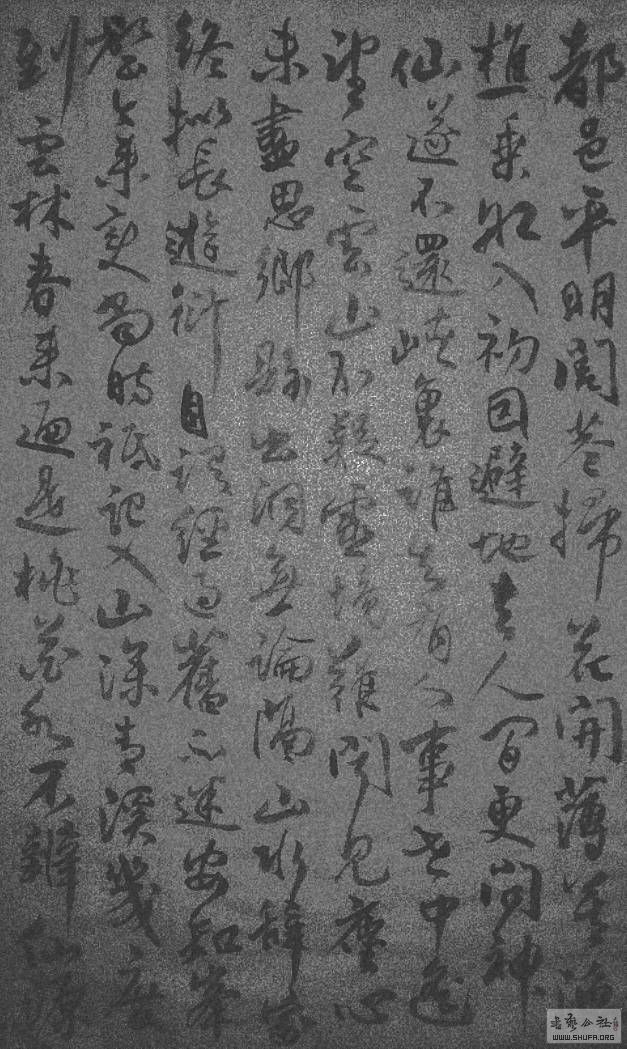 都邑平明閭巷掃花開薄暮漁
樵乘水入初因避地去人間更問神
仙遂不還峽裏誰知有人事世中遙
望空雲山不疑靈境難聞見塵心
未盡思鄉縣出洞無論隔山水辭家
終擬長遊衍自謂經過舊不迷安知峯
壑今來變當時祗記入山深青溪幾度
到雲林春來遍是桃花水不辨仙源
書法公社
WWW.SHUFA.ORG